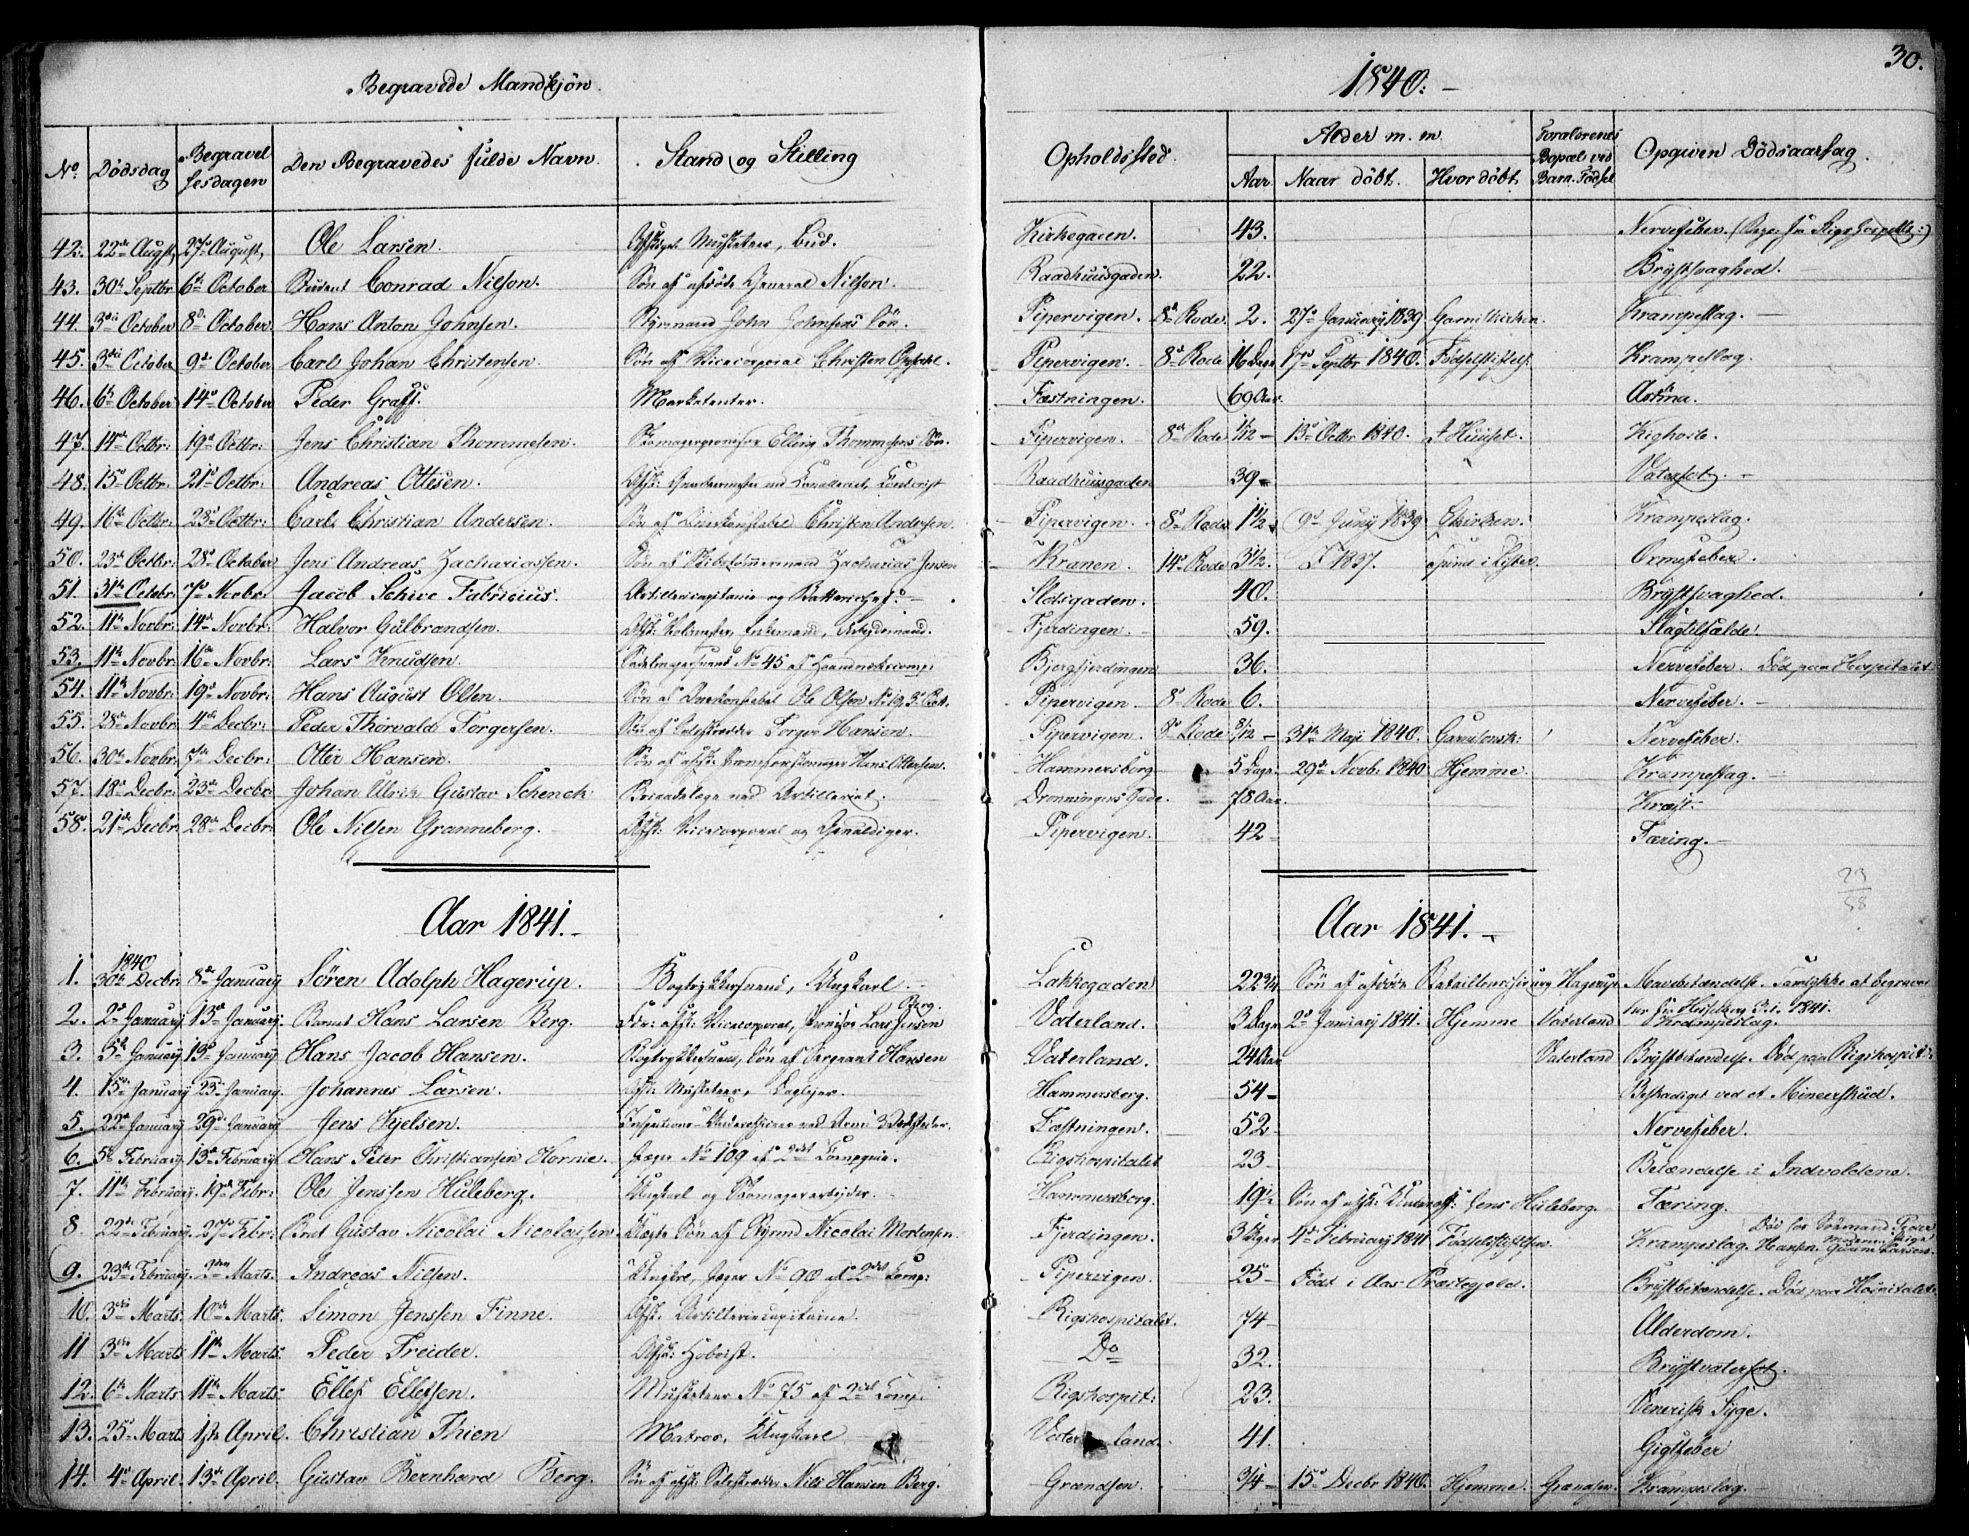 30.
Begravede Mandkjøn.
1840.
No. Dødsdag Begravelsesdagen Den Begravedes fulde Navn. Stand og Stilling Opholdssted. Alder m. m. Aar Naar døbt. Hvor døbt. Forældrenes Bopæl ved Barn. Fødsel Opgiven Dødsaarsag.
42. 22de Augst, 27de August, Ole Larsen. Musketeer, Bud. Kirkegaden. 43. Nervefeber.
43. 30te Septbr 6te October Student Conrad Nilson. Søn af afdøde General Nilson. Raadhuusgaden. 22. Brystsvaghed.
44. 3die October 8de October. Hans Anton Johnsen. Styrmand John Johnsens Søn. Pipervigen. 8de Rode 2. 27de January 1839 Garnilkirken. Krampeslag.
45. 3die October 9de October Carl Johan Christensen. Søn af Vicecorporal Christen Pipervigen. 8de Rode 16 Dage 17de Septbr 1840. Fødselsstiftels. Krampeslag.
46. 6te October 14de October Peder Graff. Marketenter. Fæstningen. 69 Aar. Astma.
47. 14de Octbr: 19de Octbr: Jens Christian Thommesen. Ellling Thommesens Søn. Pipervigen. 8de Rode 1/12 13de Octbr 1840. I Huuset. Kighoste.
48. 15de Octbr: 21de Octbr: Andreas Ottesen. Raadhuusgaden 39 Vatersot.
49. 16de Octbr: 23de Octbr: Carl Christian Andersen. Søn af Christen Andersen. Pipervigen. 8de Rode 1 1/2 9de Juny 1839 Kirken. Krampeslag.
50. 23de Octbr: 28de October Jens Andreas Zachariassen. Søn af Skibstømmermand Zacharias Jensen Kranen. 14de Rode 3 1/2. 1837. Ormefeber.
51. 31te Octobr: 7de Novbr: Jacob Schive Fabricius. Artillericapitain og Batterichef. Slotsgaden. 40. Brystsvaghed.
52. 11te Novbr: 14de Novbr: Halvor Gulbrandsen. Enkemand, Arbejdsmand. Fjerdingen. 59. Slagtilfælde.
53. 11te Novbr: 16de Novbr: Lars Knudsen. No 45 af Bjergfjerdingen 36. Nervefeber. Død paa Hospitalet
54. 11te Novbr: 19de Novbr: Hans August Olsen. Søn af Ole Olsen No 19, 3de Bat. Pipervigen. 8de Rode 6. Nervefeber.
55. 28de Novbr: 4de Decbr: Peder Thorvald Torgersen. Søn af Torger Hansen. Pipervigen. 8de Rode 8/12 31te Maji 1840. Nervefeber.
56. 30te Novbr: 7de Decbr: Otter Hansen. Søn af Hans Ottersen. Hammersborg 5 Dage. 29de Novb. 1840 Hjemme. Krampeslag.
57. 18de Decbr: 23de Decbr: Johan Ulrik Gustav Schenck Brigadelæge ved Artilleriet. Dronningens Gade. 78 Aar. Kræft
58. 21de Decbr: 28de Decbr: Ole Nilsen Granneberg. Afsk: Vicecorporal og Pipervigen. 42 Tæring.
23
58
Aar 1841. Aar 1841.
1. 1840 30te Decbr: 8de January Søren Adolph Hagerup. Bogtrykkersvend, Ungkarl Lakkegaden 22 3/4 Søn af afdøde Hagerup.
2. 2de January 13de January. Barnet Hans Larsen Berg. Lars Jensen Berg. Vaterland. 3 Dage 2de January 1841. Hjemme Vaterland Krampeslag.
3. 5te January 13de January. Hans Jacob Hansen. Bogtrykkersvend, Søn af Sergeant Hansen Vaterland. 24 Aar Vaterland Brystbetændelse. Død paa Rigshospit:
4. 15de January 23de January. Johannes Larsen. Afsk: Musketeer, Daglejer. Hammersborg. 54 Beskadiget ved et Mineerskud.
5. 22de January 29de January Jens Kjelsen. Fæstningen. 52 Nervefeber.
6. 5te February 13de February. Hans Peter Christiansen Hornie. Jæger No 109 af 2det Compagnie. Rigshospitalet 23 Betændelse i Indvoldene.
7. 11te February. 19de Febr: Ole Jensen Huleberg. Ungkarl og Skomagerarbejder. Hammersborg. 19 1/2 Søn af afsk: Jens Huleberg. Tæring.
8. 22de February. 27de Febr: Brnt Gustav Nicolai Nicolaysen Uægte Søn af Styrmd Nicolai Mortensen. Fjerdingen. 3 Uger 4de February 1841 Fødselsstiftelsen. Krampeslag.
9. 23de February. 2den Marts. Andreas Nilsen. Ungkarl, Jæger No 90 af 2det Comp: Pipervigen. 25 Født i Aas Præstegjeld. Brystbetændelse. Død paa Hospitalet.
10. 3die Marts. 10de Marts. Simon Jenssen Finne. Afsk: Artilleriecapitaine. Rigshospitalet. 74 Alderdom.
11 3die Marts 11te Marts. Peder Treider. Afsk: Hoboist. Do 32. Brystvatersot.
12. 6te Marts 11te Marts. Ellef Ellefsen. Musketeer No 75 af 2det Comp. Rigshospit: 23. Venerisk Syge.
13. 25de Marts 1ste April. Christian Thien Matros, Ungkarl Vaterland. 41. Gigtfeber
14. 4de April. 13de April. Gustav Bernhard Berg. Søn af afsk: Nils Hansen Berg. Grændsen. 3/4 15de Decbr 1840. Hjemme. Grændsen. Krampeslag.